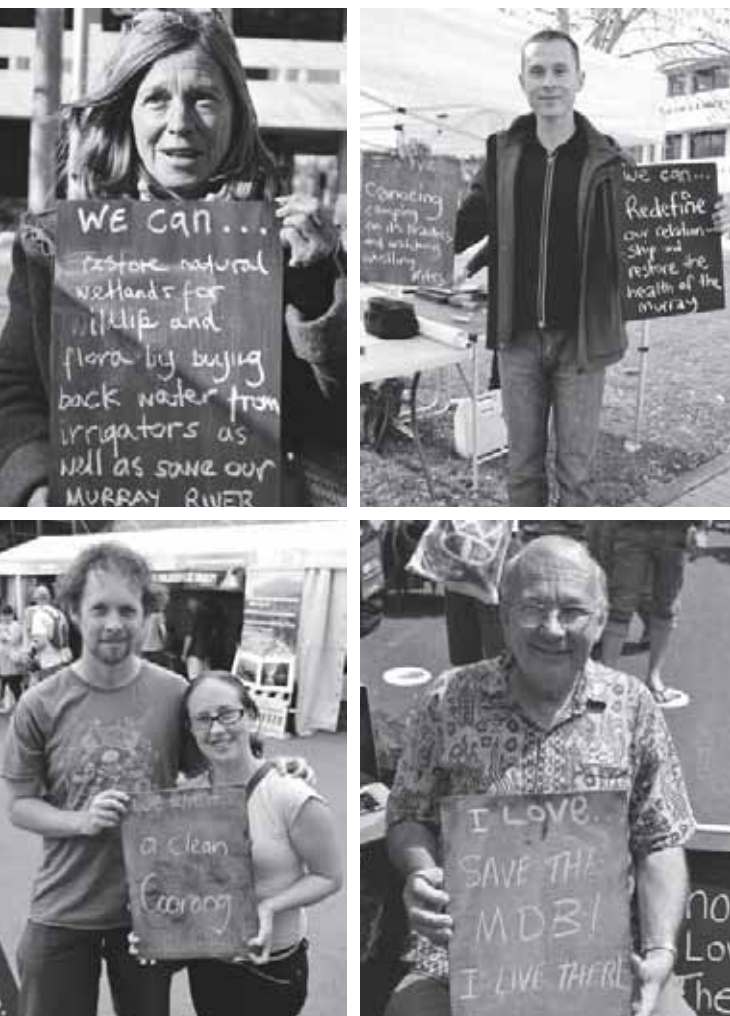 WE can...
restore natural
wetlands for
and
flora by buying
back water from
irrigators as
well as save our
MURRAY RIVER
Canoeing
camping
on its beaches
and watching
whistling
kites
we can...
Redefine
our relation-
ship and
restore the
health of the
Murray
a clean
Coorong
I LOVE..
SAVE THE
MDB!
I LIVE THERE
no
Lov
The